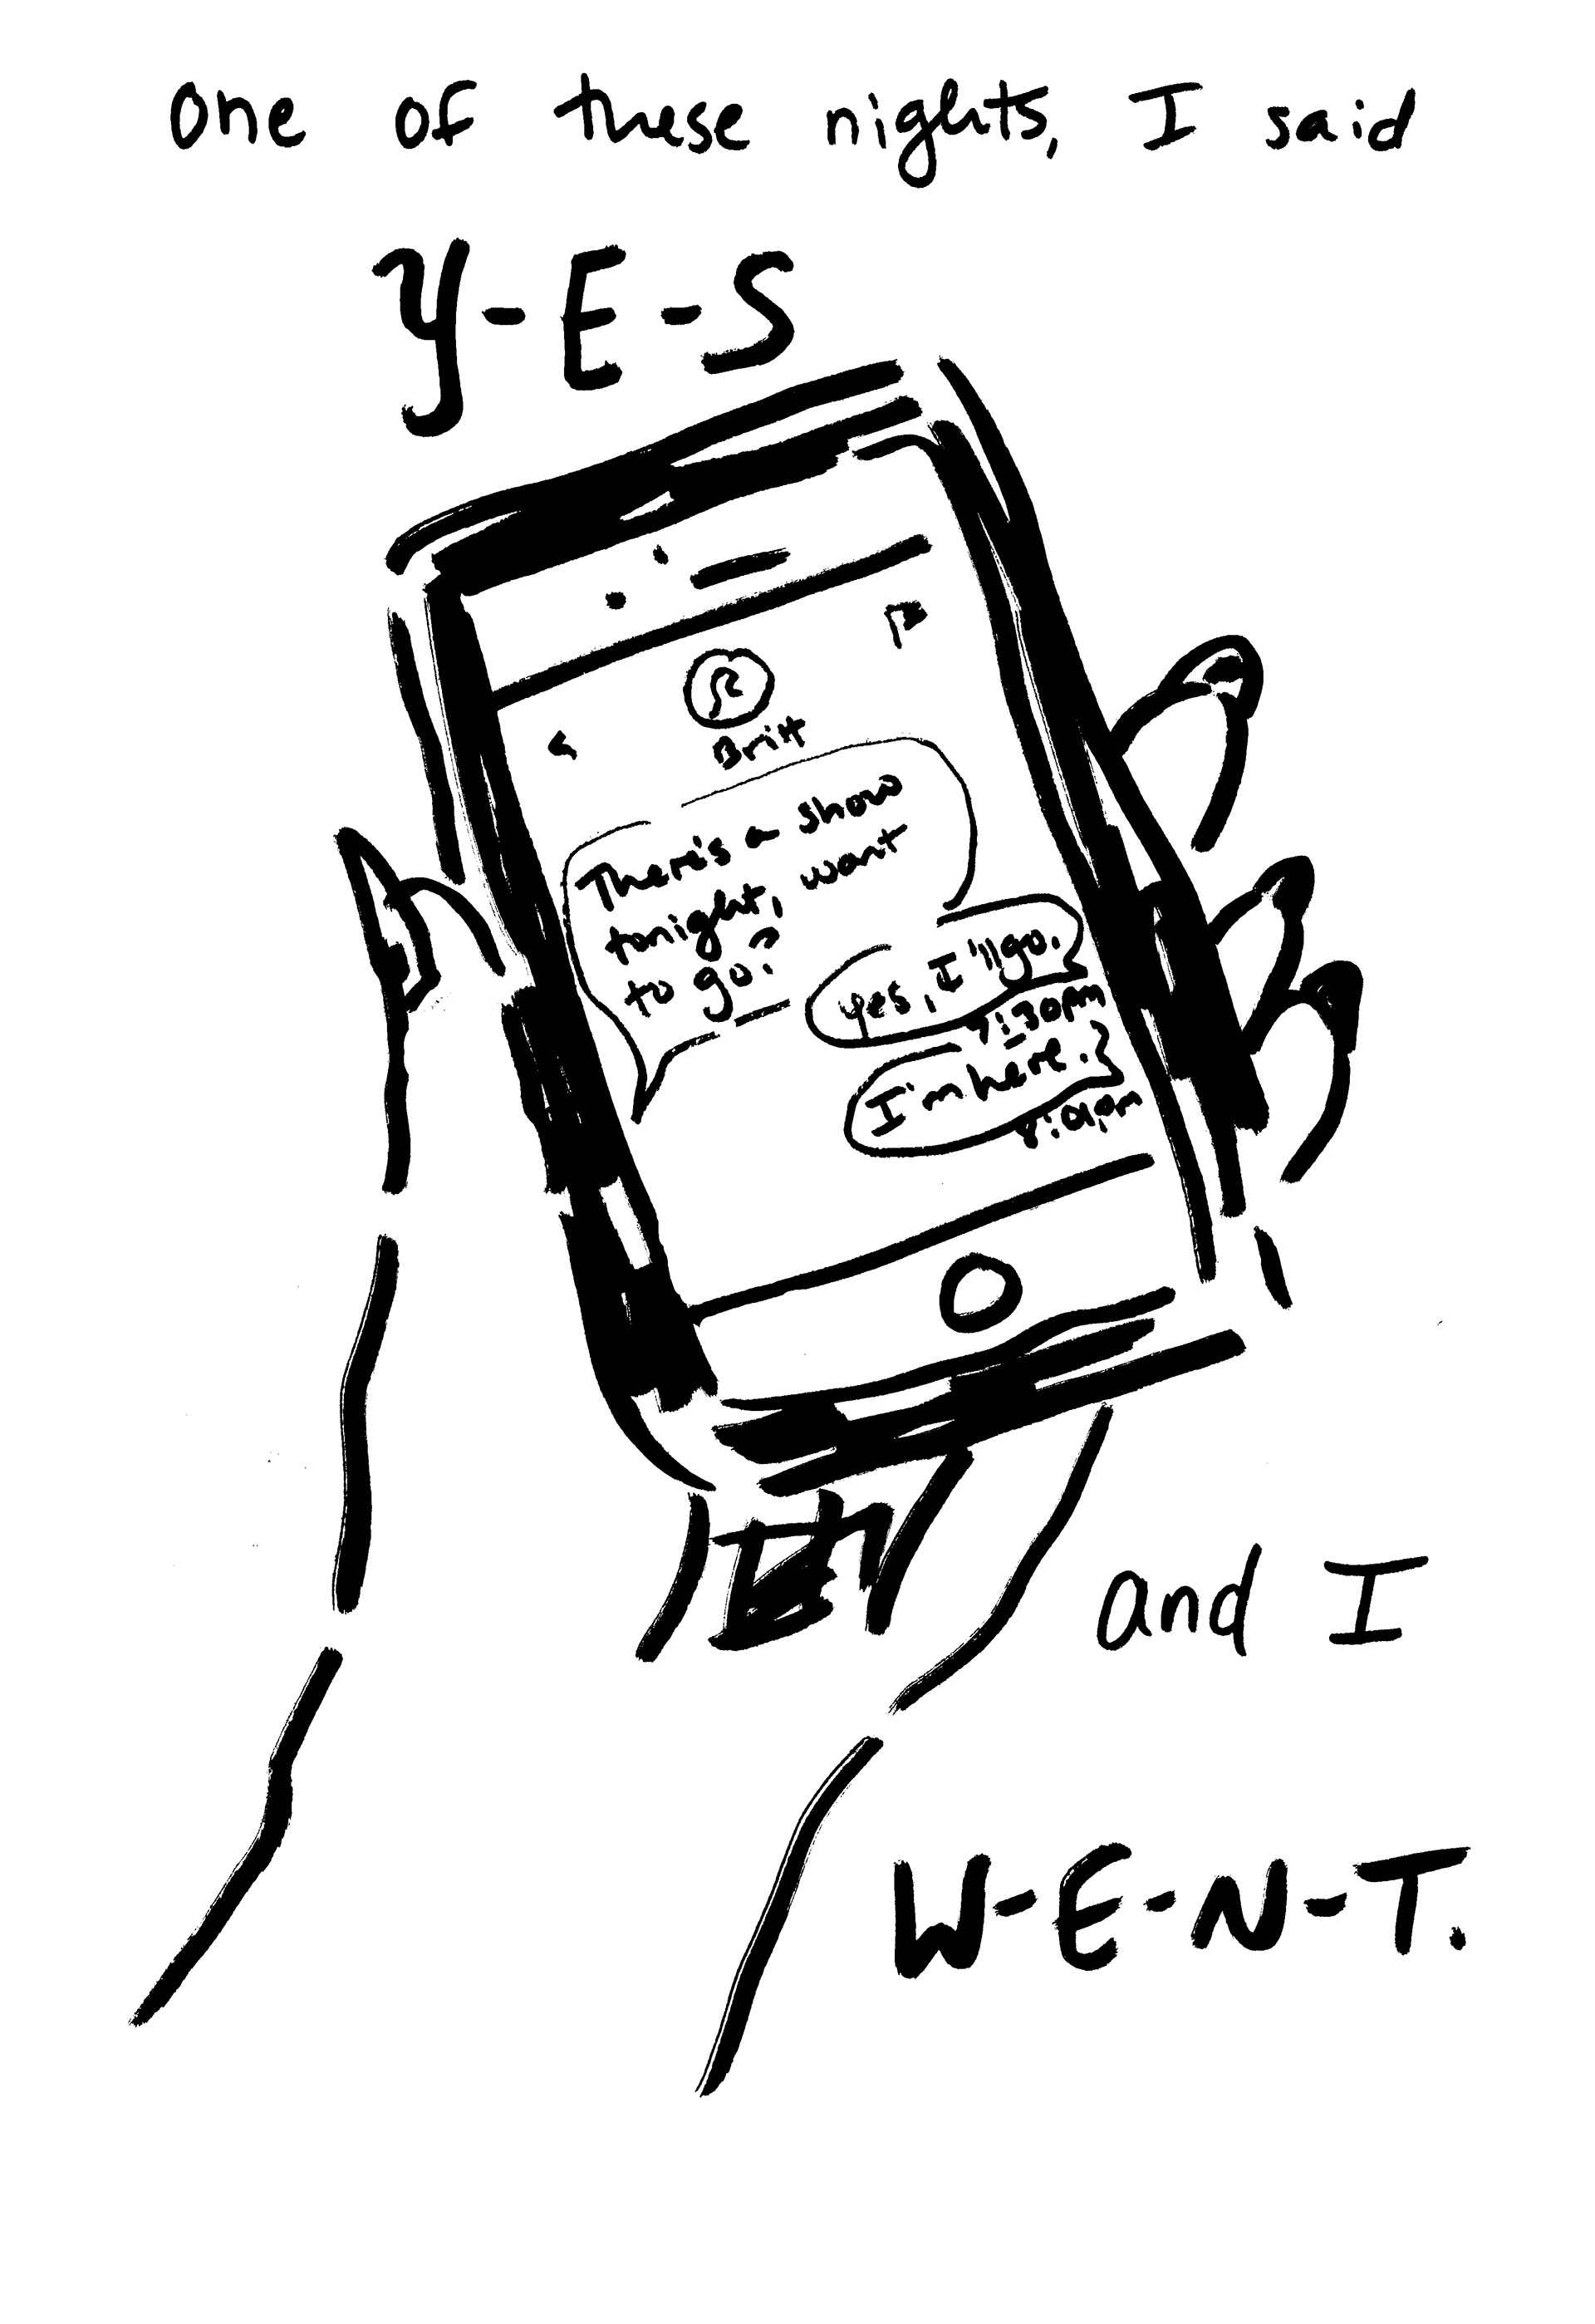 One of these nights, I said
Y-E-S
Britt
There's a show
tonight, want
to go?
yes, I'll go.
7:30pm
I'm here.
8:01pm
and I
W-E-N-T.